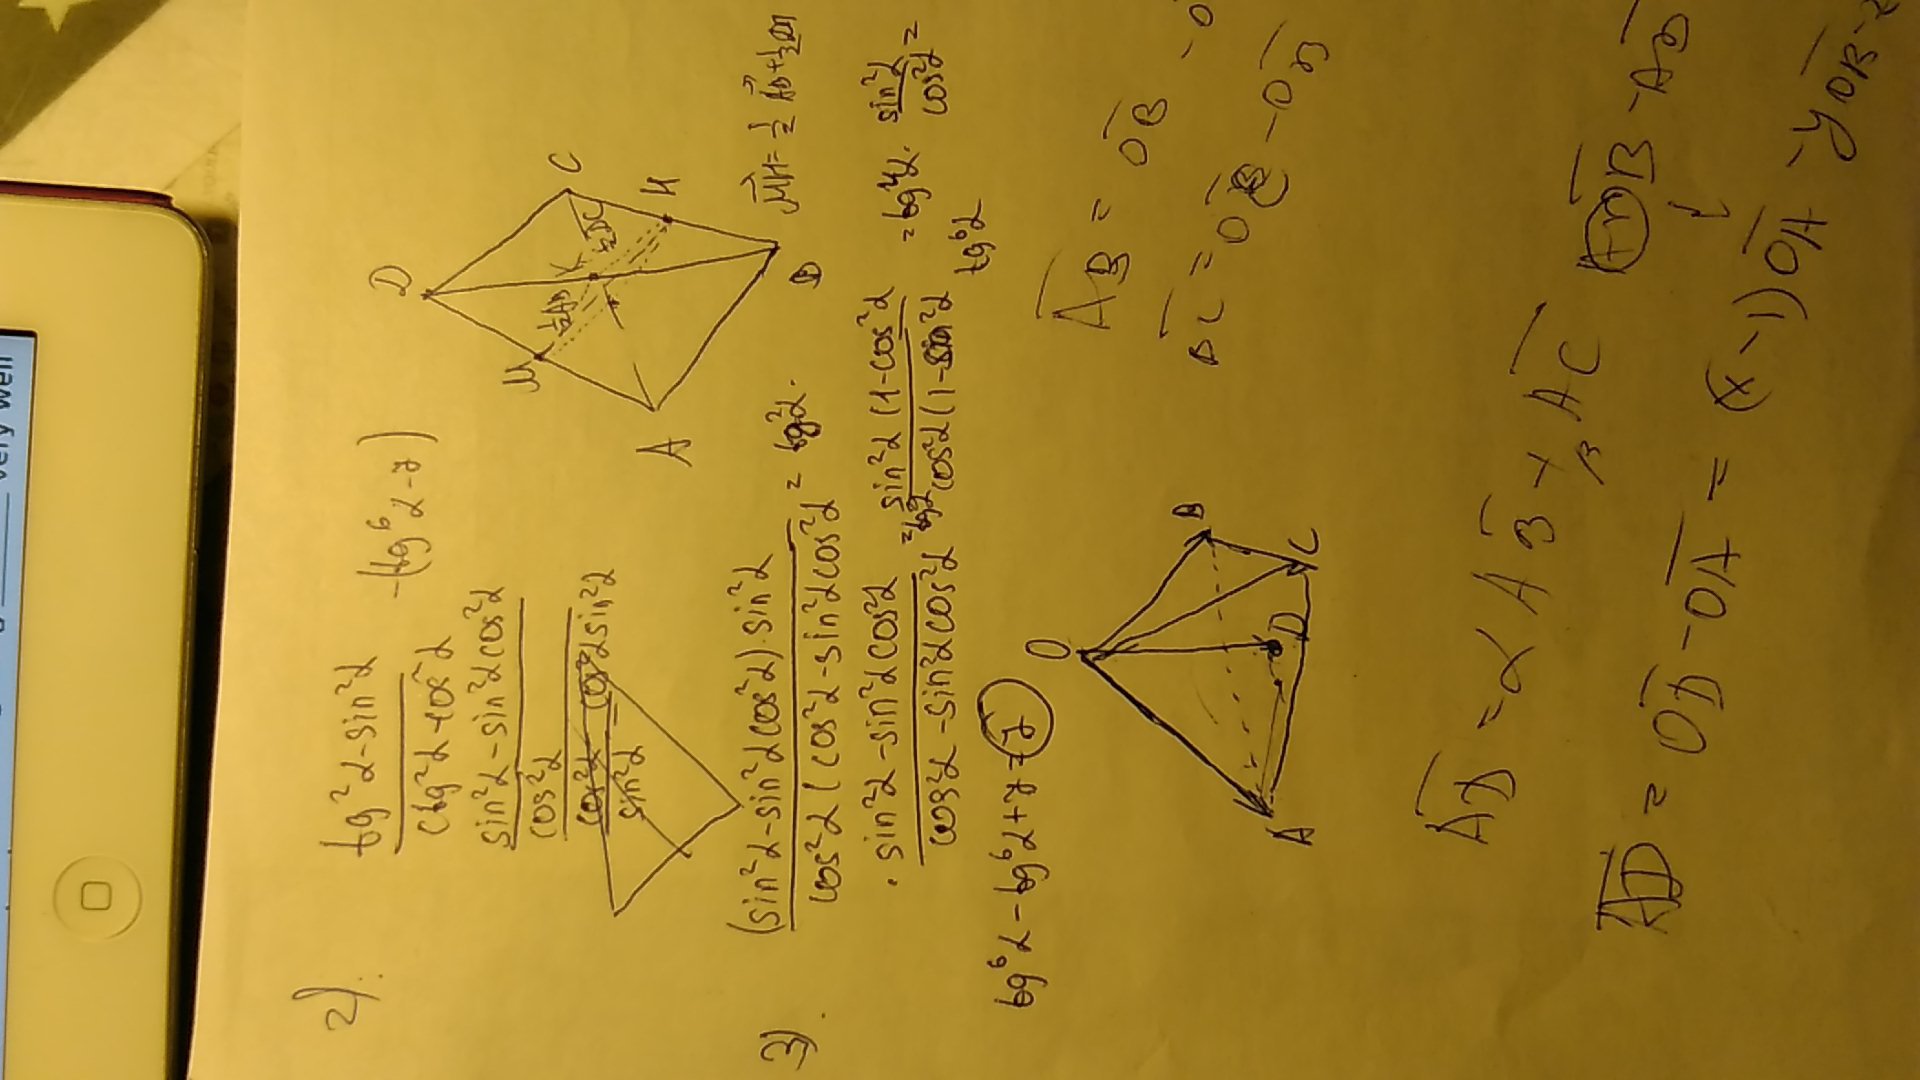 very well
2).
tg²α-sin²α
ctg²α-cos²α
-(tg⁶α-7)
sin²α-sin²αcos²α
cos²α
cos²α - cos²αsin²α
sin²α
D
C
M
K
½AB
½DC
A
B
3).
(sin²α-sin²αcos²α)·sin²α
cos²α(cos²α-sin²αcos²α)
= tg²α·
· sin²α-sin²αcos²α
cos²α-sin²αcos²α
sin²α(1-cos²α
cos²α(1-sin²α
= tg⁴α· sin²α
cos²α =
tg⁶α
tg⁶α-tg⁶α+7=7
O
B
C
D
A
AB = OB -
= OC - OB
AD = α AB + β AC
AD = OD - OA = (x-1)OA - yOB -